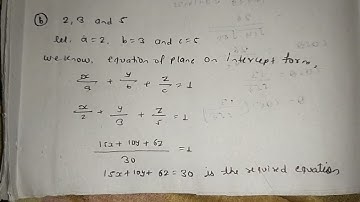 (b) 2, 3 and 5
let, a = 2, b = 3 and c = 5
we know, equation of plane on intercept form,
x/a + y/b + z/c = 1
x/2 + y/3 + z/5 = 1
15x + 10y + 6z / 30 = 1
15x + 10y + 6z = 30 is the required equation